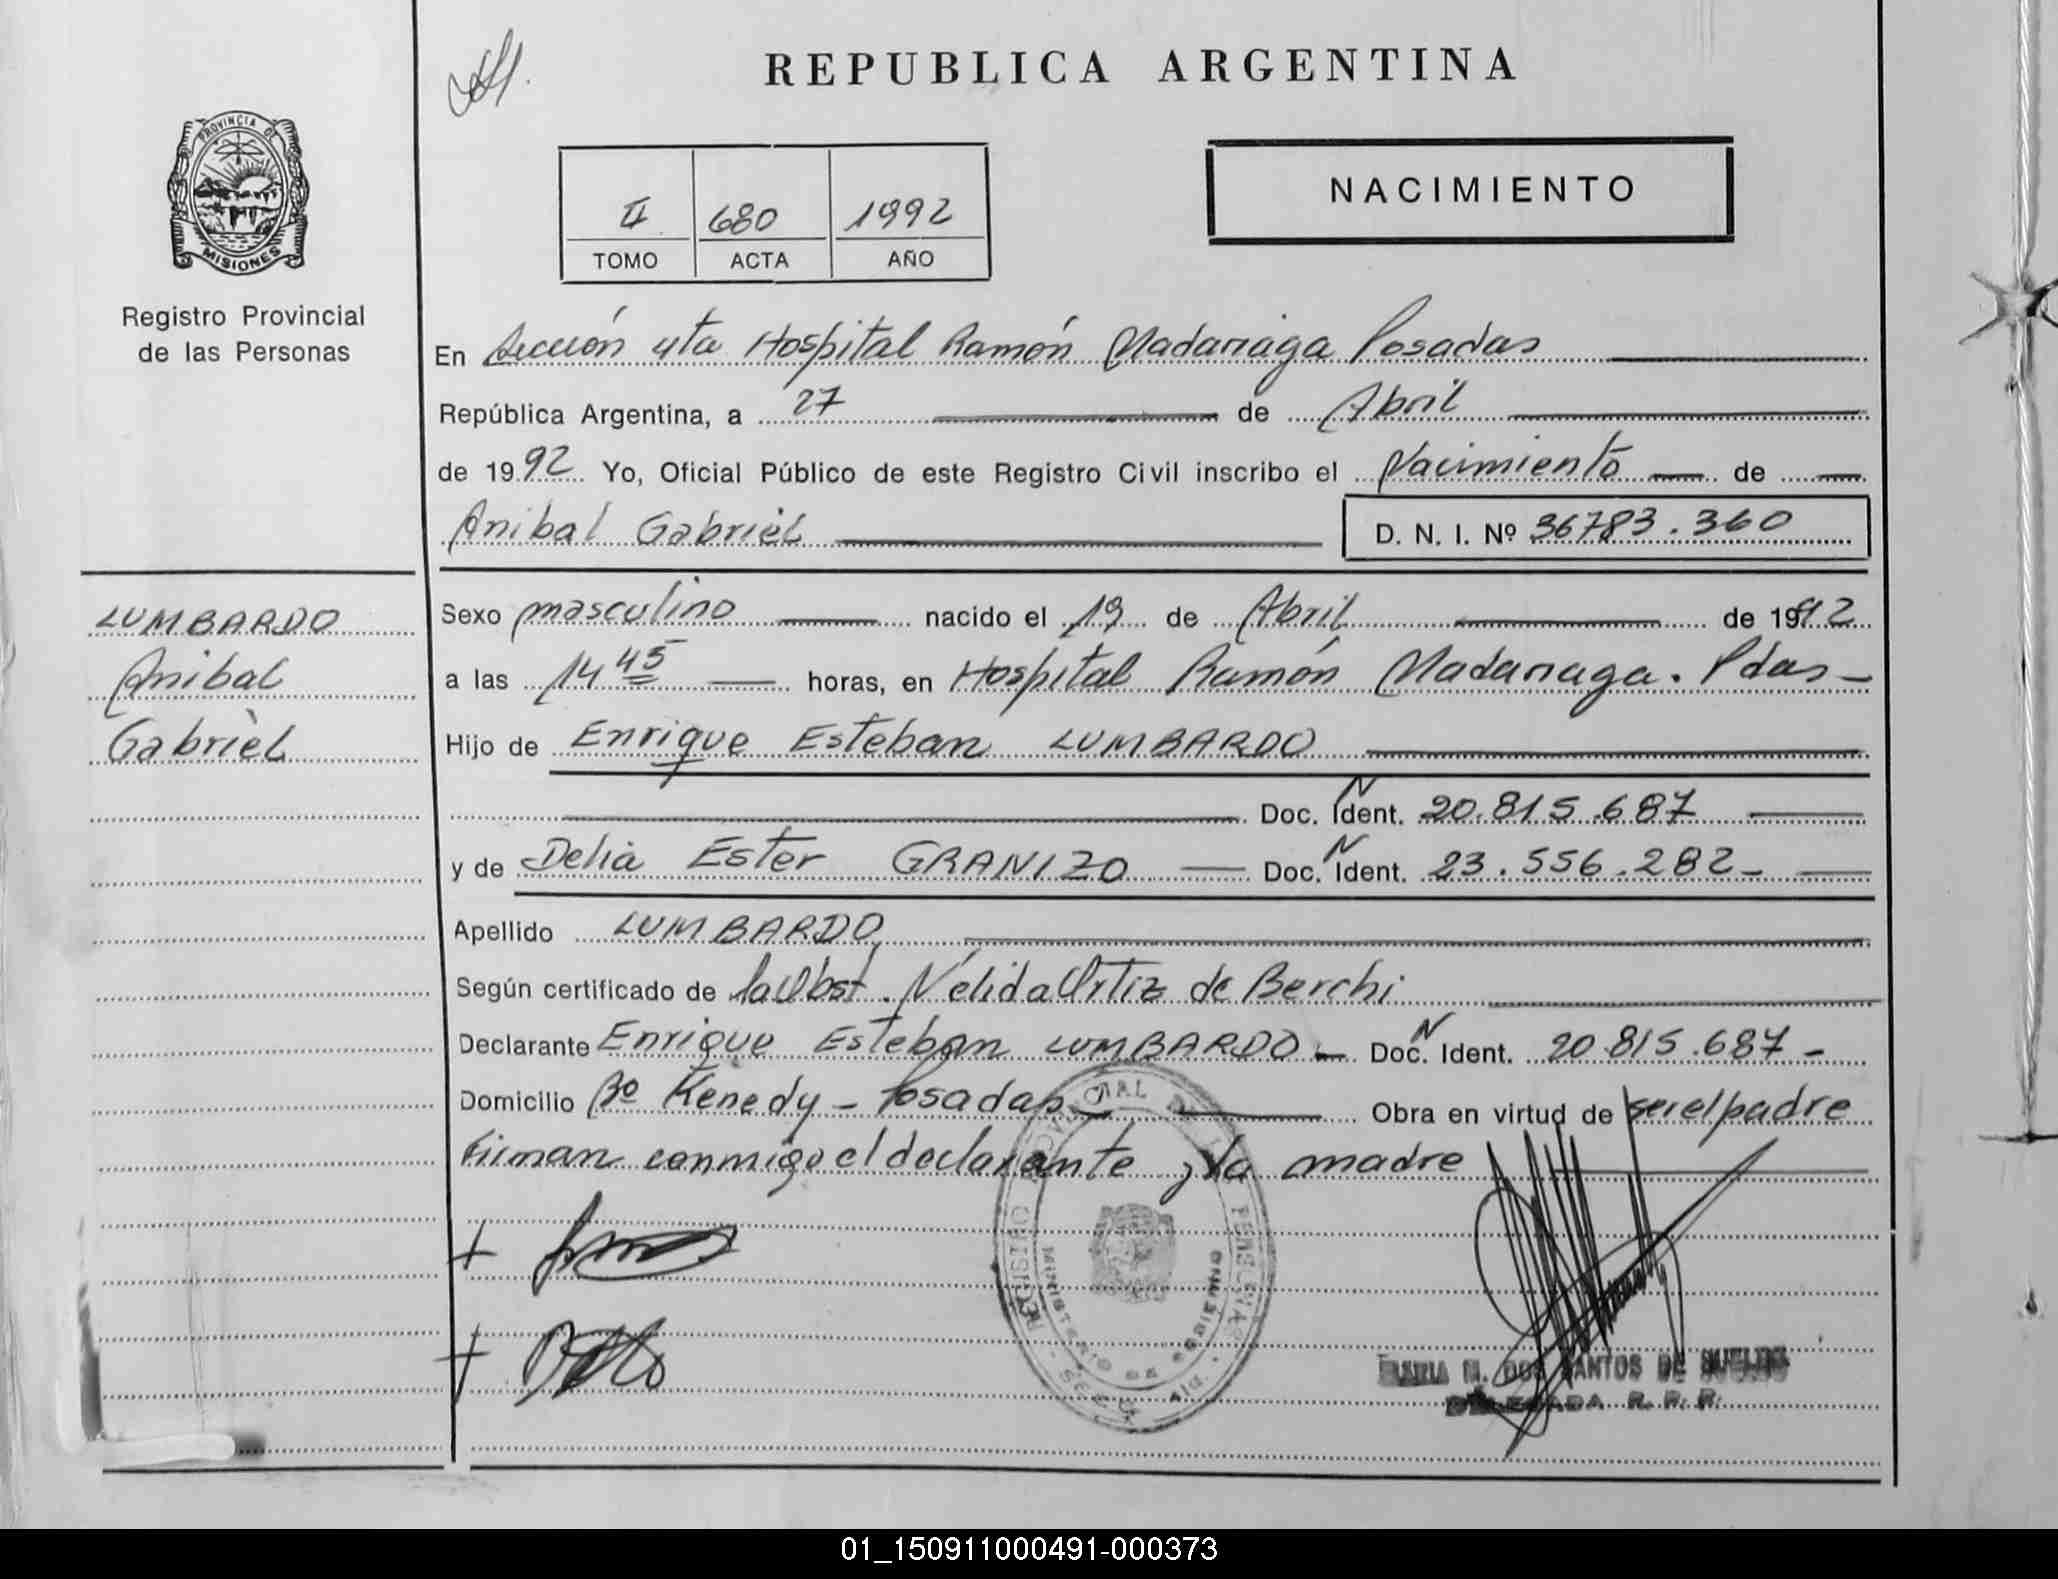 REPUBLICA ARGENTINA
PROVINCIA DE
MISIONES
Registro Provincial
de las Personas
II 680 1992
TOMO ACTA AÑO
NACIMIENTO
En Sección 4ta Hospital Ramón Madariaga Posadas
República Argentina, a 27 de Abril
de 1992 Yo, Oficial Público de este Registro Civil inscribo el Nacimiento de
Anibal Gabriel D. N. I. Nº 36783.360
LUMBARDO
Anibal
Gabriel
Sexo masculino nacido el 19 de Abril de 1992
a las 14 45 horas, en Hospital Ramón Madariaga. Pdas
Hijo de Enrique Esteban LUMBARDO
Doc. N Ident. 20.815.687
y de Delia Ester GRANIZO Doc. N Ident. 23.556.282
Apellido LUMBARDO
Según certificado de la Obst. Nélida Ortiz de Berchi
Declarante Enrique Esteban LUMBARDO Doc. N Ident. 20.815.687
Domicilio Bº Kenedy - Posadas Obra en virtud de ser el padre
Firman conmigo el declarante y la madre
REGISTRO PROVINCIAL DE LAS PERSONAS
MINISTERIO DE GOBIERNO
MARIA M. DOS SANTOS DE
DELEGADA R. P. P.
01_150911000491-000373